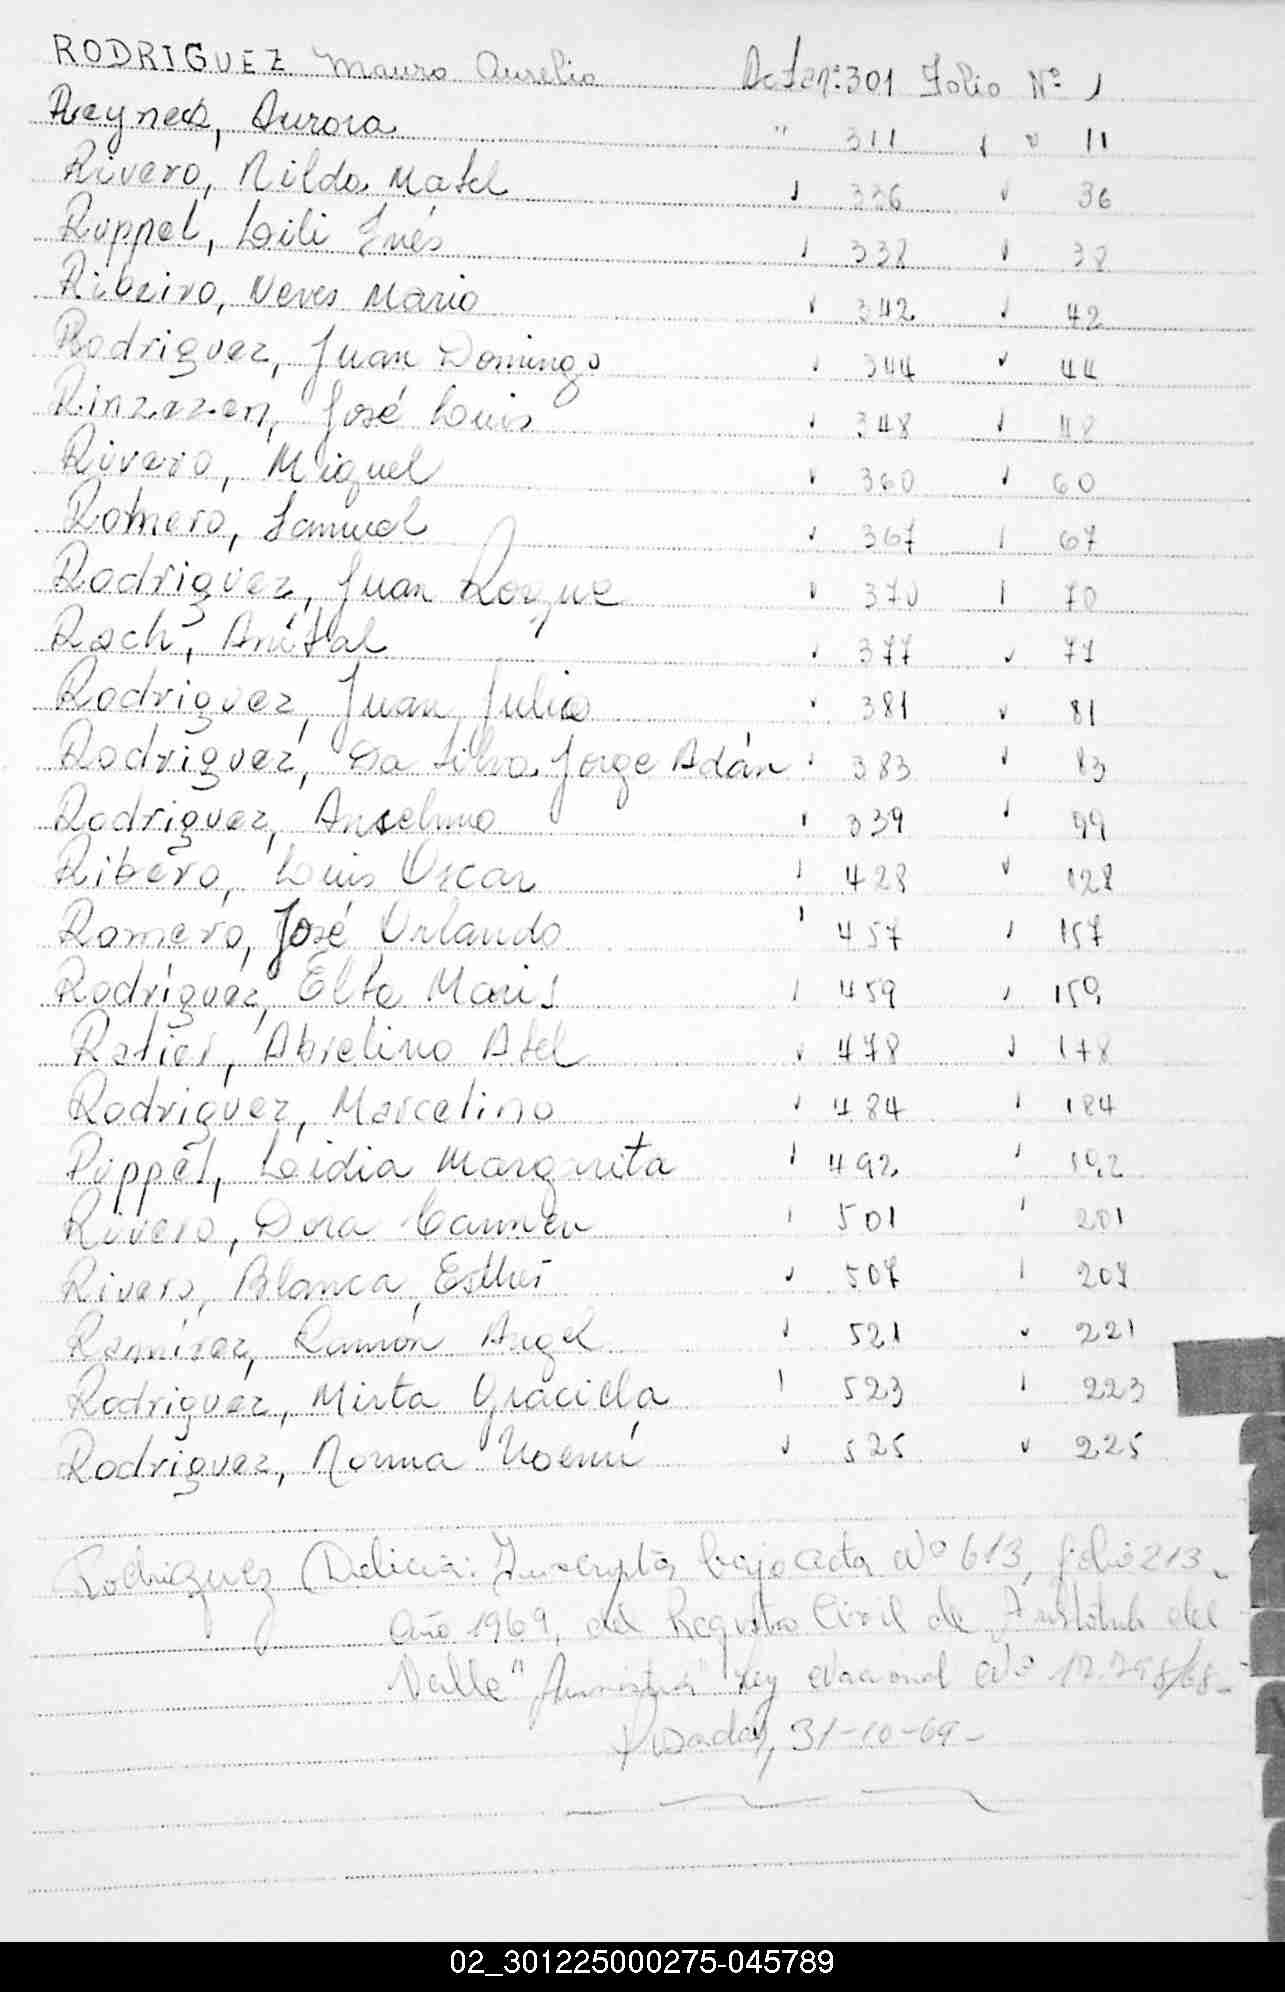 RODRIGUEZ Mauro Aurelio Acta nº 301 Folio Nº 1
Reynes, Aurora " 311 " " 11
Rivero, Nilda Mabel " 336 " 36
Ruppel, Lili Inés " 338 " 38
Ribeiro, Neves Mario " 342 " 42
Rodriguez, Juan Domingo " 344 " 44
José Luis " 348 " 48
Rivero, Miguel " 360 " 60
Romero, Samuel " 367 " 67
Rodriguez, Juan Roque " 370 " 70
Anibal " 377 " 77
Rodriguez, Juan Julio " 381 " 81
Rodriguez, Da Silva Jorge Adán " 383 " 83
Rodriguez, Anselmo " 339 " 99
Ribero, Luis Oscar " 428 " 128
Romero, José Orlando " 457 " 157
Rodriguez, Elba Maris " 459 " 159
Ratier, Abel " 478 " 178
Rodriguez, Marcelino " 484 " 184
Ruppel, Lidia Margarita " 492 " 192
Rivero, Dora Carmen " 501 " 201
Rivero, Blanca Esther " 507 " 207
Ramírez, Ramón Angel " 521 " 221
Rodriguez, Mirta Graciela " 523 " 223
Rodriguez, Norma Noemí " 525 " 225
Rodriguez Delicia: Inscripta bajo acta Nº 613, folio 213-
Año 1969, del Registro Civil de Aristóbulo del
Valle "Amnistia" Ley Nacional Nº
Posadas, 31-10-69-
02_301225000275-045789